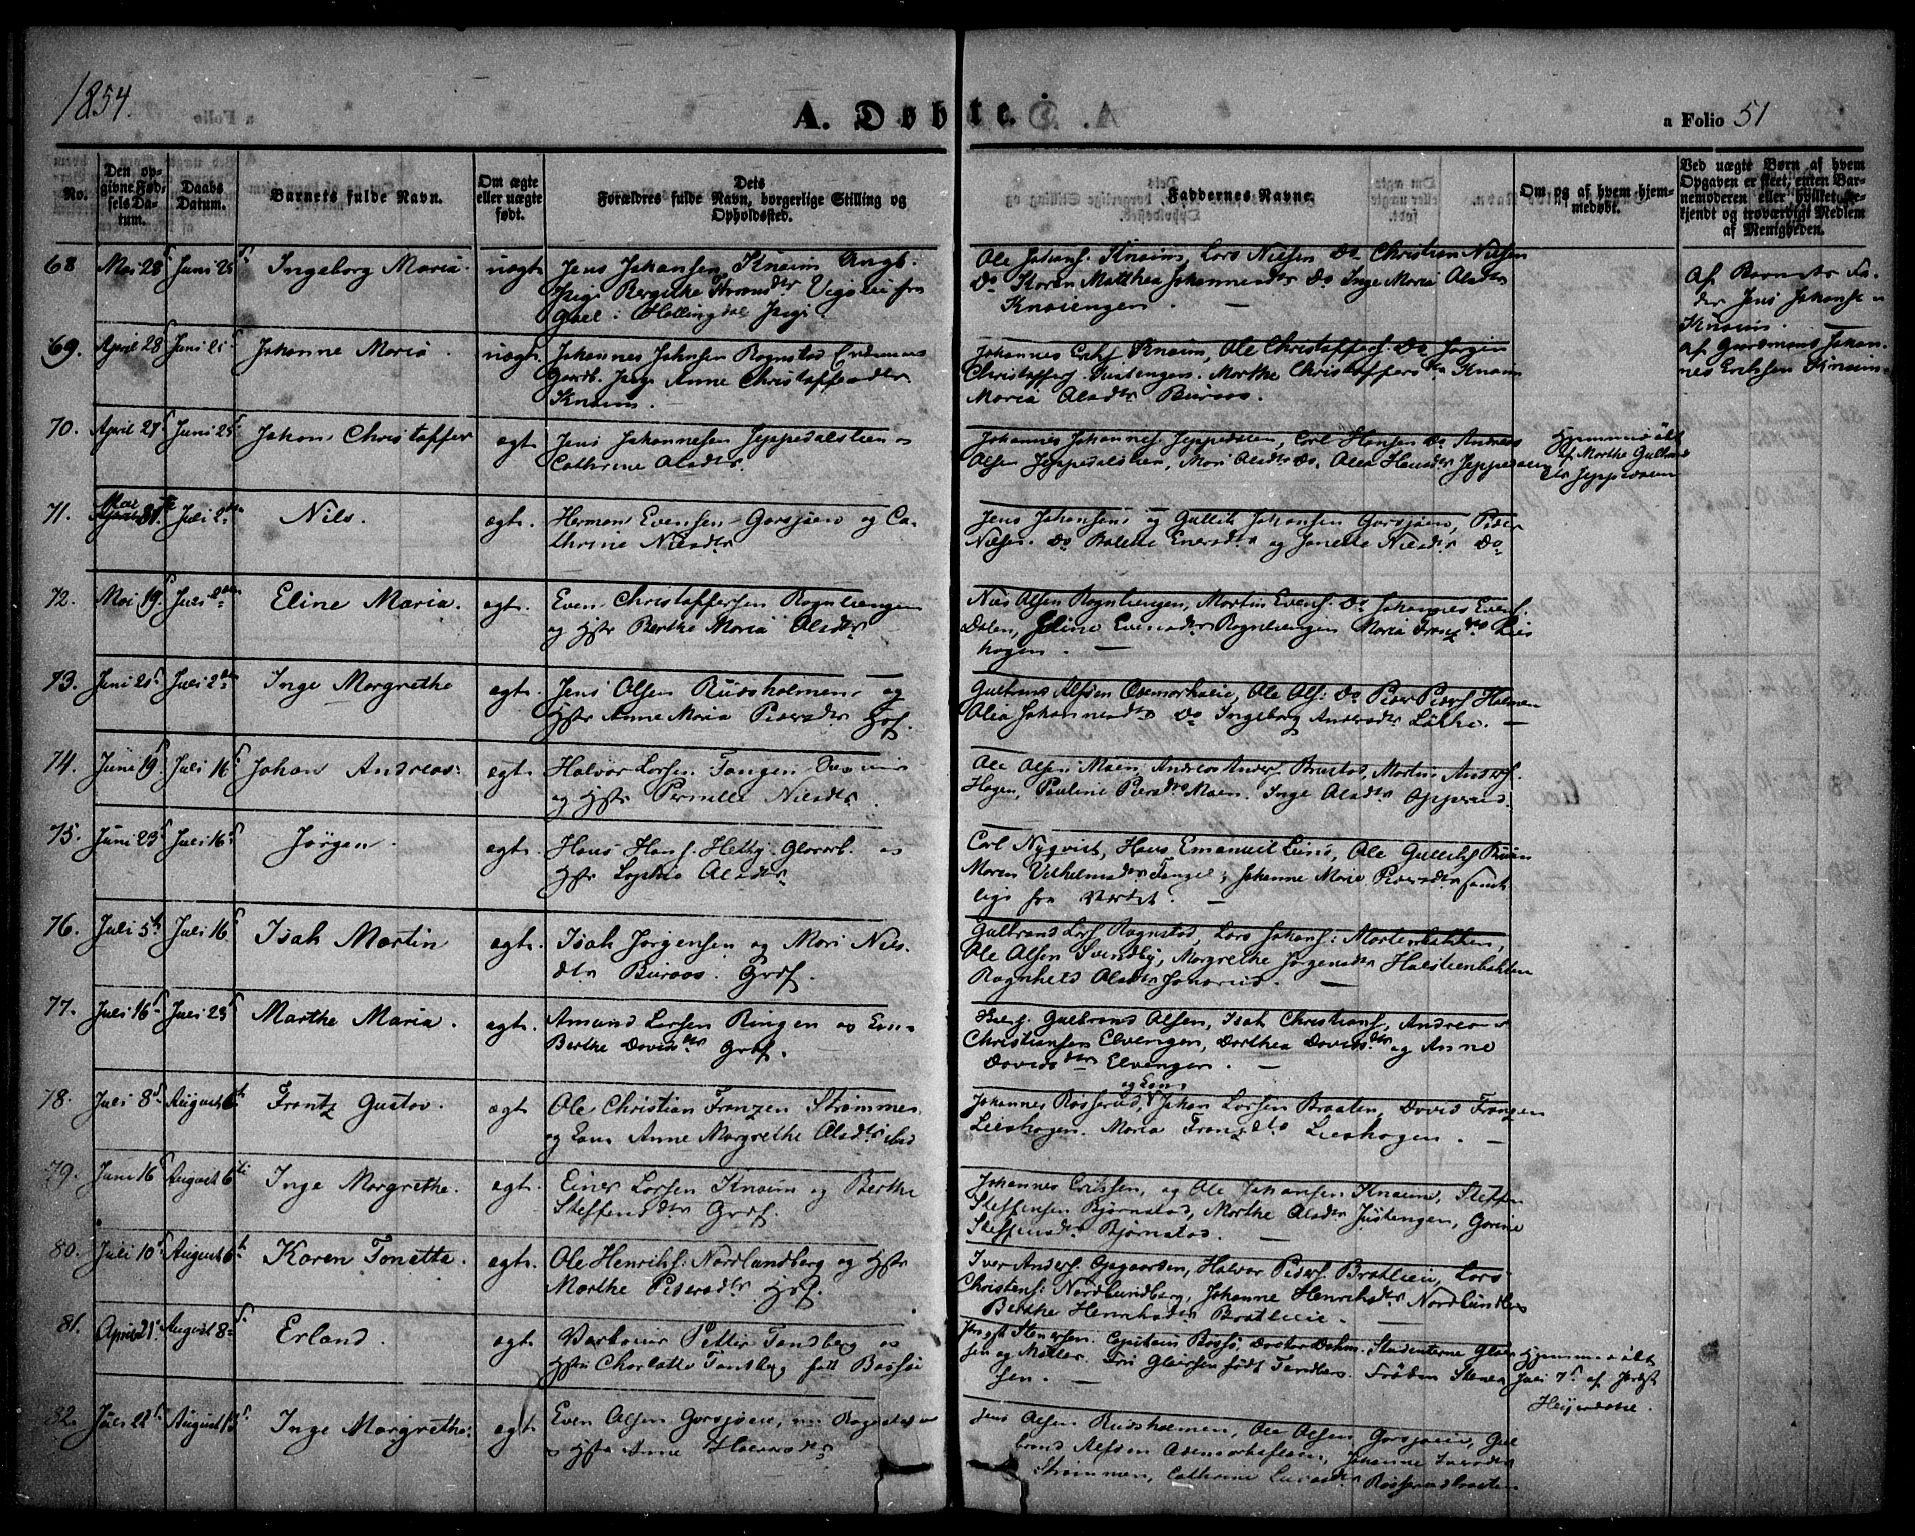 1854.
A. Døbte.
a Folio 51
No.
Den opgivne Fødsels Datum.
Daabs Datum.
Barnets fulde Navn.
Om ægte eller uægte født.
Dets Forældres fulde Navn, borgerlige Stilling og Opholdssted.
Faddernes Navne.
Om og af hvem hjemmedøbt.
Ved uægte Børn af hvem Opgaven er skeet, enten Barnemoderen eller hvilket bekjendt og troværdigt Medlem af Menigheden.
68 Mai 28 Juni 25 Ingeborg Maria. uægte Jens Johansen Knaim Ungk.
Pige Bergithe
Goel i Hallingdal Pige
Ole Johans. Knaim, Lars Nielsen Do Christian Nilsen
Do Karen Matthea Johannesdtr Do Inge Maria Olsdtr
Knaiengen.
af Barnets Fader Jens Johansen Knaim.
69. April 28 Juni 25 Johanne Maria uægte Johannes Johnsen Rognstad
Gaardb. Pige Anne Christoffersdtr
Knaim.
Johannes Eriks. Knaim, Ole Christoffers. Do Jørgen
Christoffers. Justengen. Marthe Christoffersdtr Knaim
Maria Olsdtr Buraas.
af Gaardmand Johannes Eriksen Knaim
70. April 27 Juni 25 Johan Christoffer ægte Jens Johannesen Jeppedalstien
Cathrine Olsdtr.
Johannes Johannes. Jeppedalen, Carl Hansen Do Andreas
Olsen Jeppedalstien, Mari Olsdtr Do, Olea Hansdtr Jeppedalen
Hjemmedøbt af Marthe Gulbrandsdtr Jeppedalen
71. Mai 31 Juli 2den Nils. ægte. Herman Evensen Garsjøen og Cathrine Nilsdtr
Jens Johansen og Gullik Johansen Garsjøen, Peder
Nilsen Do Janette Nilsdtr Do
72. Mai 19 Juli 2den Eline Maria. ægte. Even Christoffersen Rognliengen
og Hstr Berthe Maria Olsdtr
Nils Olsen Rognliengen, Martin Evens. Do Johannes Evens.
Dalen, Eline Evensdtr Rognliengen Maria Franzdtr Lieshagen.
73. Juni 25 Juli 2den Inge Margrethe ægte. Jens Olsen Rudsholmen og
Hstr Anne Maria Pedersdtr Hof.
Gulbrand Alfsen Ødemarkslie, Ole Ols. Do Peder Peders. Holmen
Olia Johannesdtr Do Ingeborg Andersdtr Løkke.
74. Juni 19 Juli 16 Johan Andreas. ægte. Halvor Larsen Tangen
og Hstr Pernille Nilsdtr.
Ole Olsen Moen, Andreas Anders. Brustad, Martin Anders.
Hagen, Pauline Pedersdtr Moen. Inge Olsdtr Opperud.
75. Juni 23 Juli 16 Jørgen. ægte. Hans Hans. Hetby
Hstr Sophie Olsdtr
Carl Nyqvist, Hans Emanuel Lund, Ole Gulliks.
Maren Vilhelmsdtr Johanne Marie Pedersdtr samtlige fra Værket.
76. Juli 5te Juli 16 Isak Martin ægte. Isak Jørgensen og Mari Nilsdtr Buraas. Grdf.
Gulbrand Lars. Rognstad, Lars Johans: Martenbakken,
Ole Olsen Svendby, Margrethe Jørgensdtr Halsteenbakken
Ragnhild Olsdtr Jonsrud.
77. Juli 16 Juli 23 Marthe Maria. ægte. Amund Larsen Ringen og Kone
Berthe Davidsdtr Grdf.
Gulbrand Olsen, Isak Christians., Andreas
Christiansen Elvengen, Dorthea Davidsdtr og Anne
Davidsdtr Elvengen.
78. Juli 8de August 6te Frantz Gustav. ægte Ole Christian Franzen Strømmen
og Kone Anne Margrethe Olsdtr
Johannes Røsserud og Kone, Johan Larsen Braaten, David Franzen
Lieshagen. Maria Franzdtr Lieshagen.
79. Juni 16 August 6te Inge Margrethe. ægte. Einer Larsen Knaim og Berthe
Steffensdtr Grdf.
Johannes Erissen, og Ole Johansen Knaim, Steffen
Steffensen Bjørnstad, Marthe Olsdtr Justengen, Gorine
Steffensdtr Bjørnstad.
80. Juli 10 August 6te Karen Tonetta. ægte. Ole Henriks: Nordlundberg og Hstr
Marthe Pedersdtr Hof.
Iver Anders. Opgaarden, Halvor Peders. Bratlien, Lars
Christens: Nordlundberg, Johanne Henriksdtr Nordlundberg
Berthe Henriksdtr Bratlien.
81. April 21 August 8de Erland. ægte. Petter Tandberg og
Hstr Charlotte Tandberg født Bassøe
Stenersen. Capitain Bassø, Doctor Dahm. Studenterne
og Møller. født Tandberg. Frøken Stenersen.
Hjemmedøbt Juli 7de af Heyerdahl.
82. Juli 22 August 13 Inge Margrethe. ægte Even Olsen Garsjøen,
Hstr Anne
Jens Olsen Rudsholmen, Ole Olsen Garsjøen, Gulbrand Alfsen Johanne
Strømmen, Cathrine